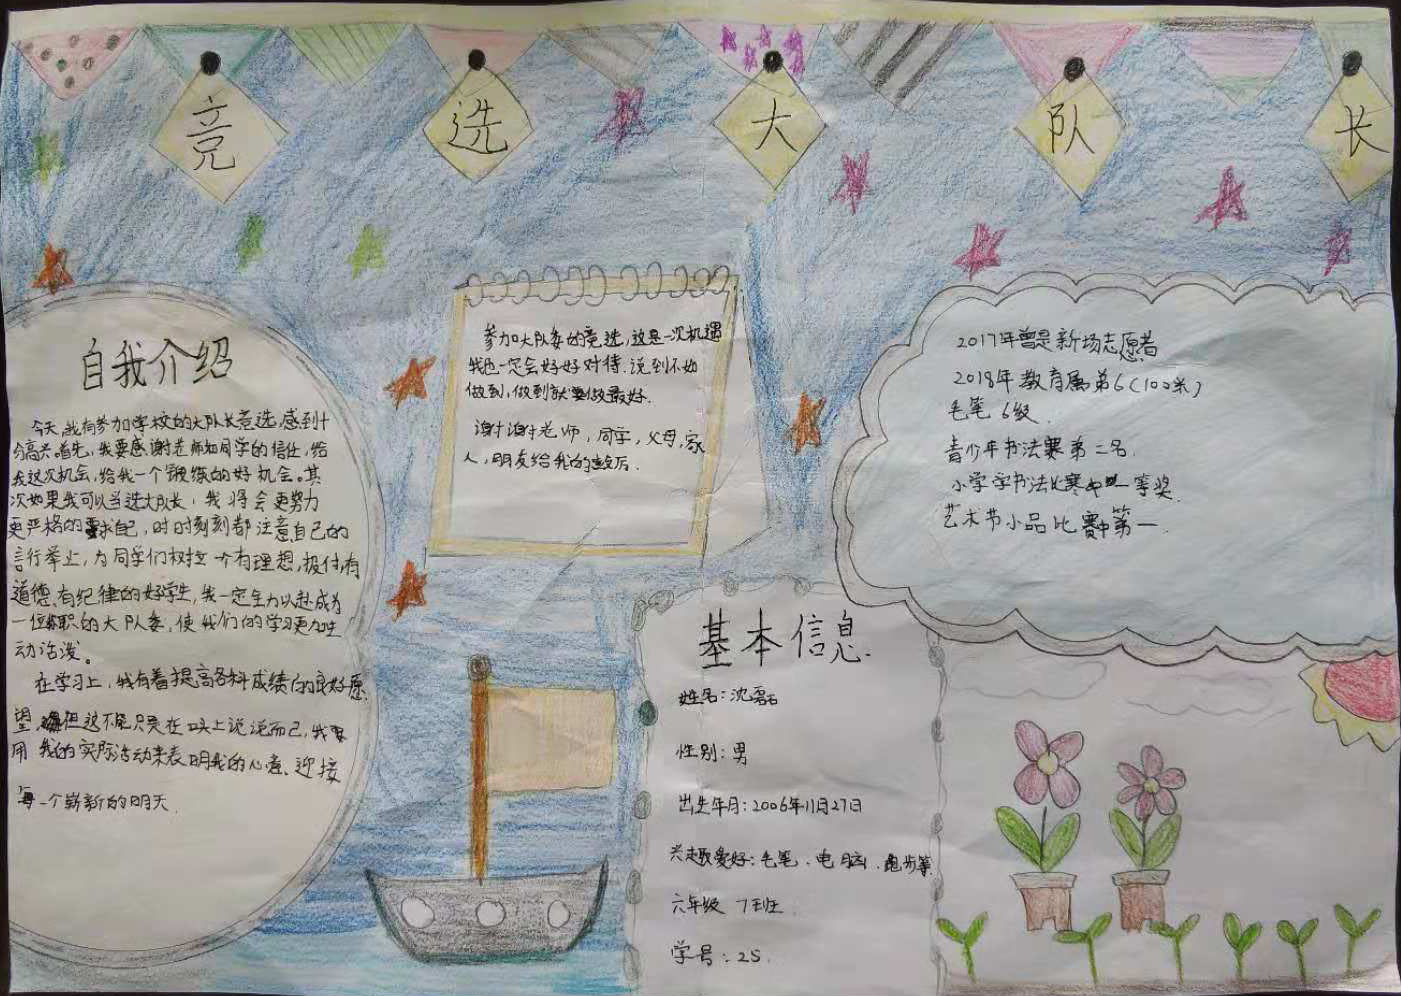 竞选大队长
自我介绍
今天,我有参加学校的大队长竞选,感到十
分高兴。首先,我要感谢老师和同学的信任,给
我这次机会,给我一个锻练的好机会。其
次如果我可以当选大队长,我将会更努力
更严格的要求自己,时时刻刻都注意自己的
言行举止,为同学们树立一个有理想,报付,有
道德、有纪律的好学生,我一定全力以赴成为
一位称职的大队委,使我们的学习更加生
动活泼。
在学习上,我有着提高各科成绩的良好愿
望,但这不能只是在口头上说说而已,我要
用我的实际活动来表明我的心意、迎接
每一个崭新的明天.
参加大队委的竞选,这是一次机遇
我也一定会好好对待.说到不如
做到,做到就要做最好.
谢谢老师,同学,父母,家
人,朋友给我的
2017年曾是新场志愿者
2018年教育属第6(100米)
毛笔6级
青少年书法赛第二名.
小学学书法比赛中一等奖.
艺术节小品比赛中第一.
基本信息.
姓名:沈磊
性别:男
出生年月:2006年11月27日
兴趣爱好:毛笔、电脑、跑步等.
六年级 7班
学号:25.